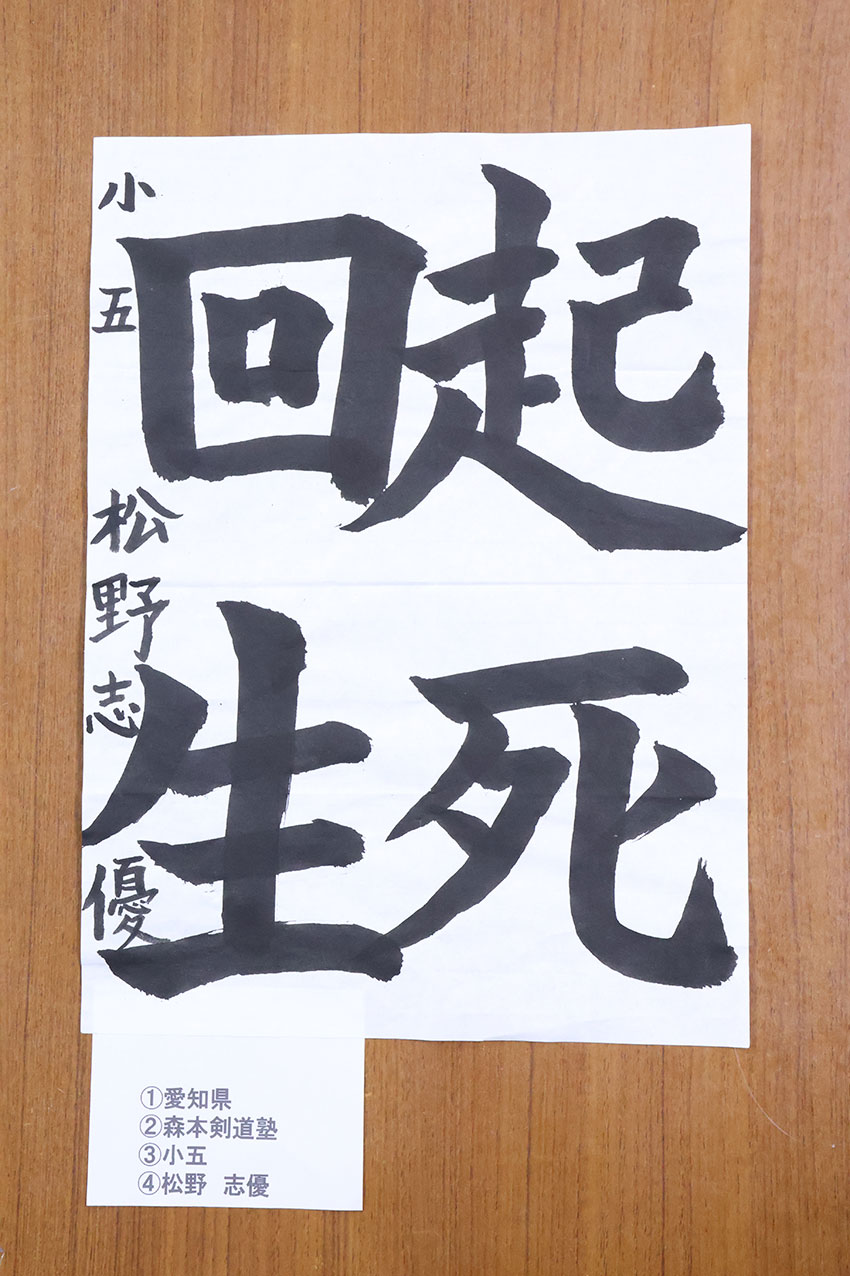 起死
回生
小五 松野志優
①愛知県
②森本剣道塾
③小五
④松野 志優